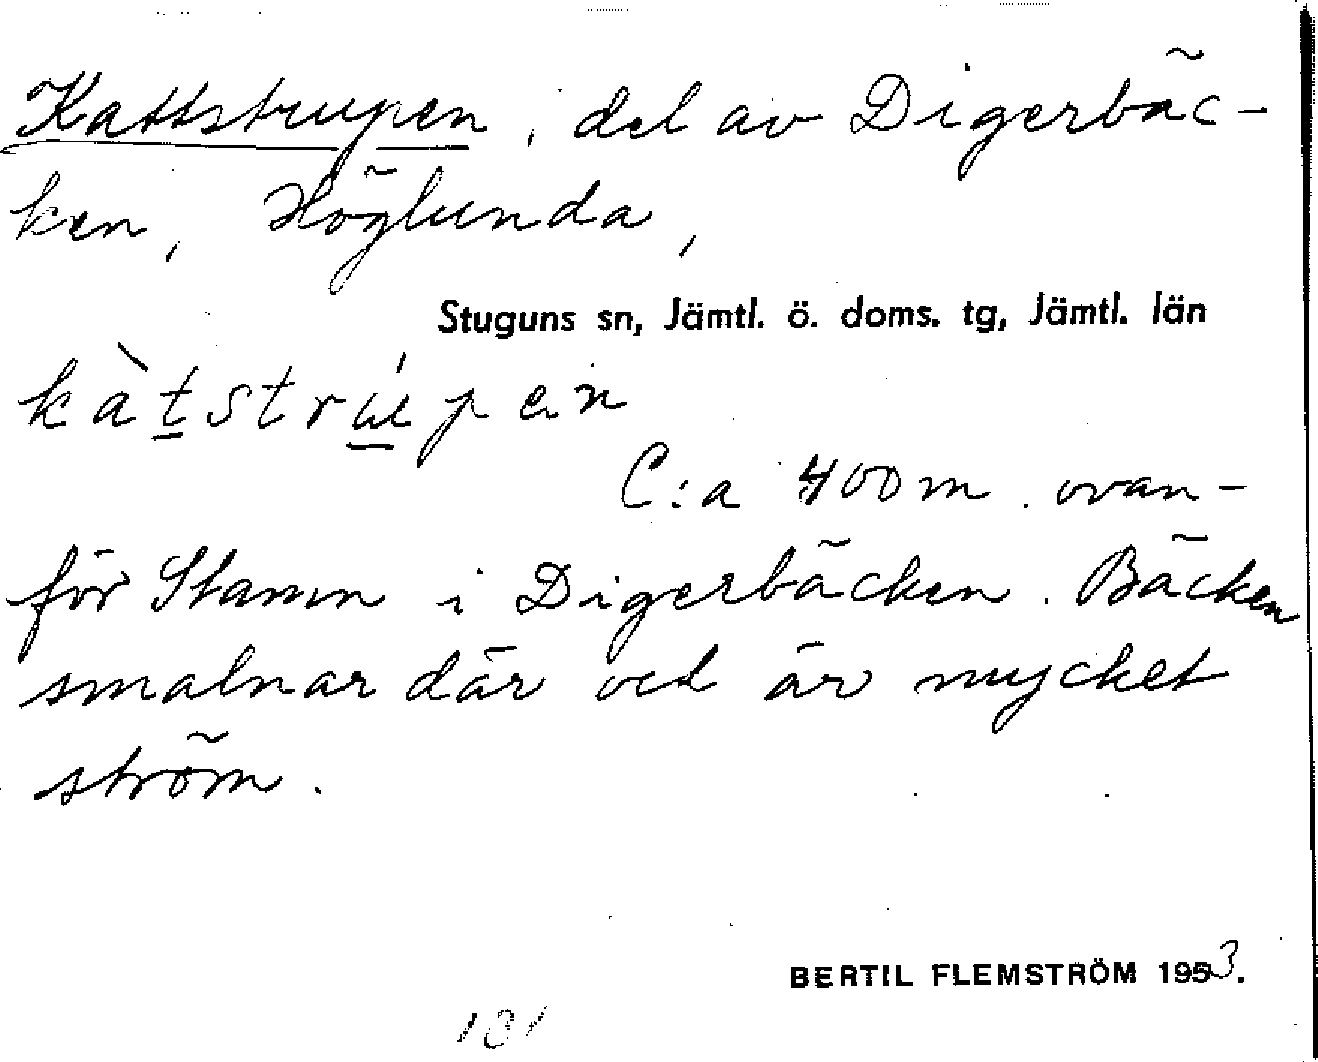 Kattstrupen, del av Digerbäc-
ken, Höglunda,
Stuguns sn, Jämtl. ö. doms. tg, Jämtl. län
kàtstrúpen
C:a 400 m. ovan-
för Stamn i Digerbäcken. Bäcken
smalnar där och är mycket
ström.
BERTIL FLEMSTRÖM 1953.
131